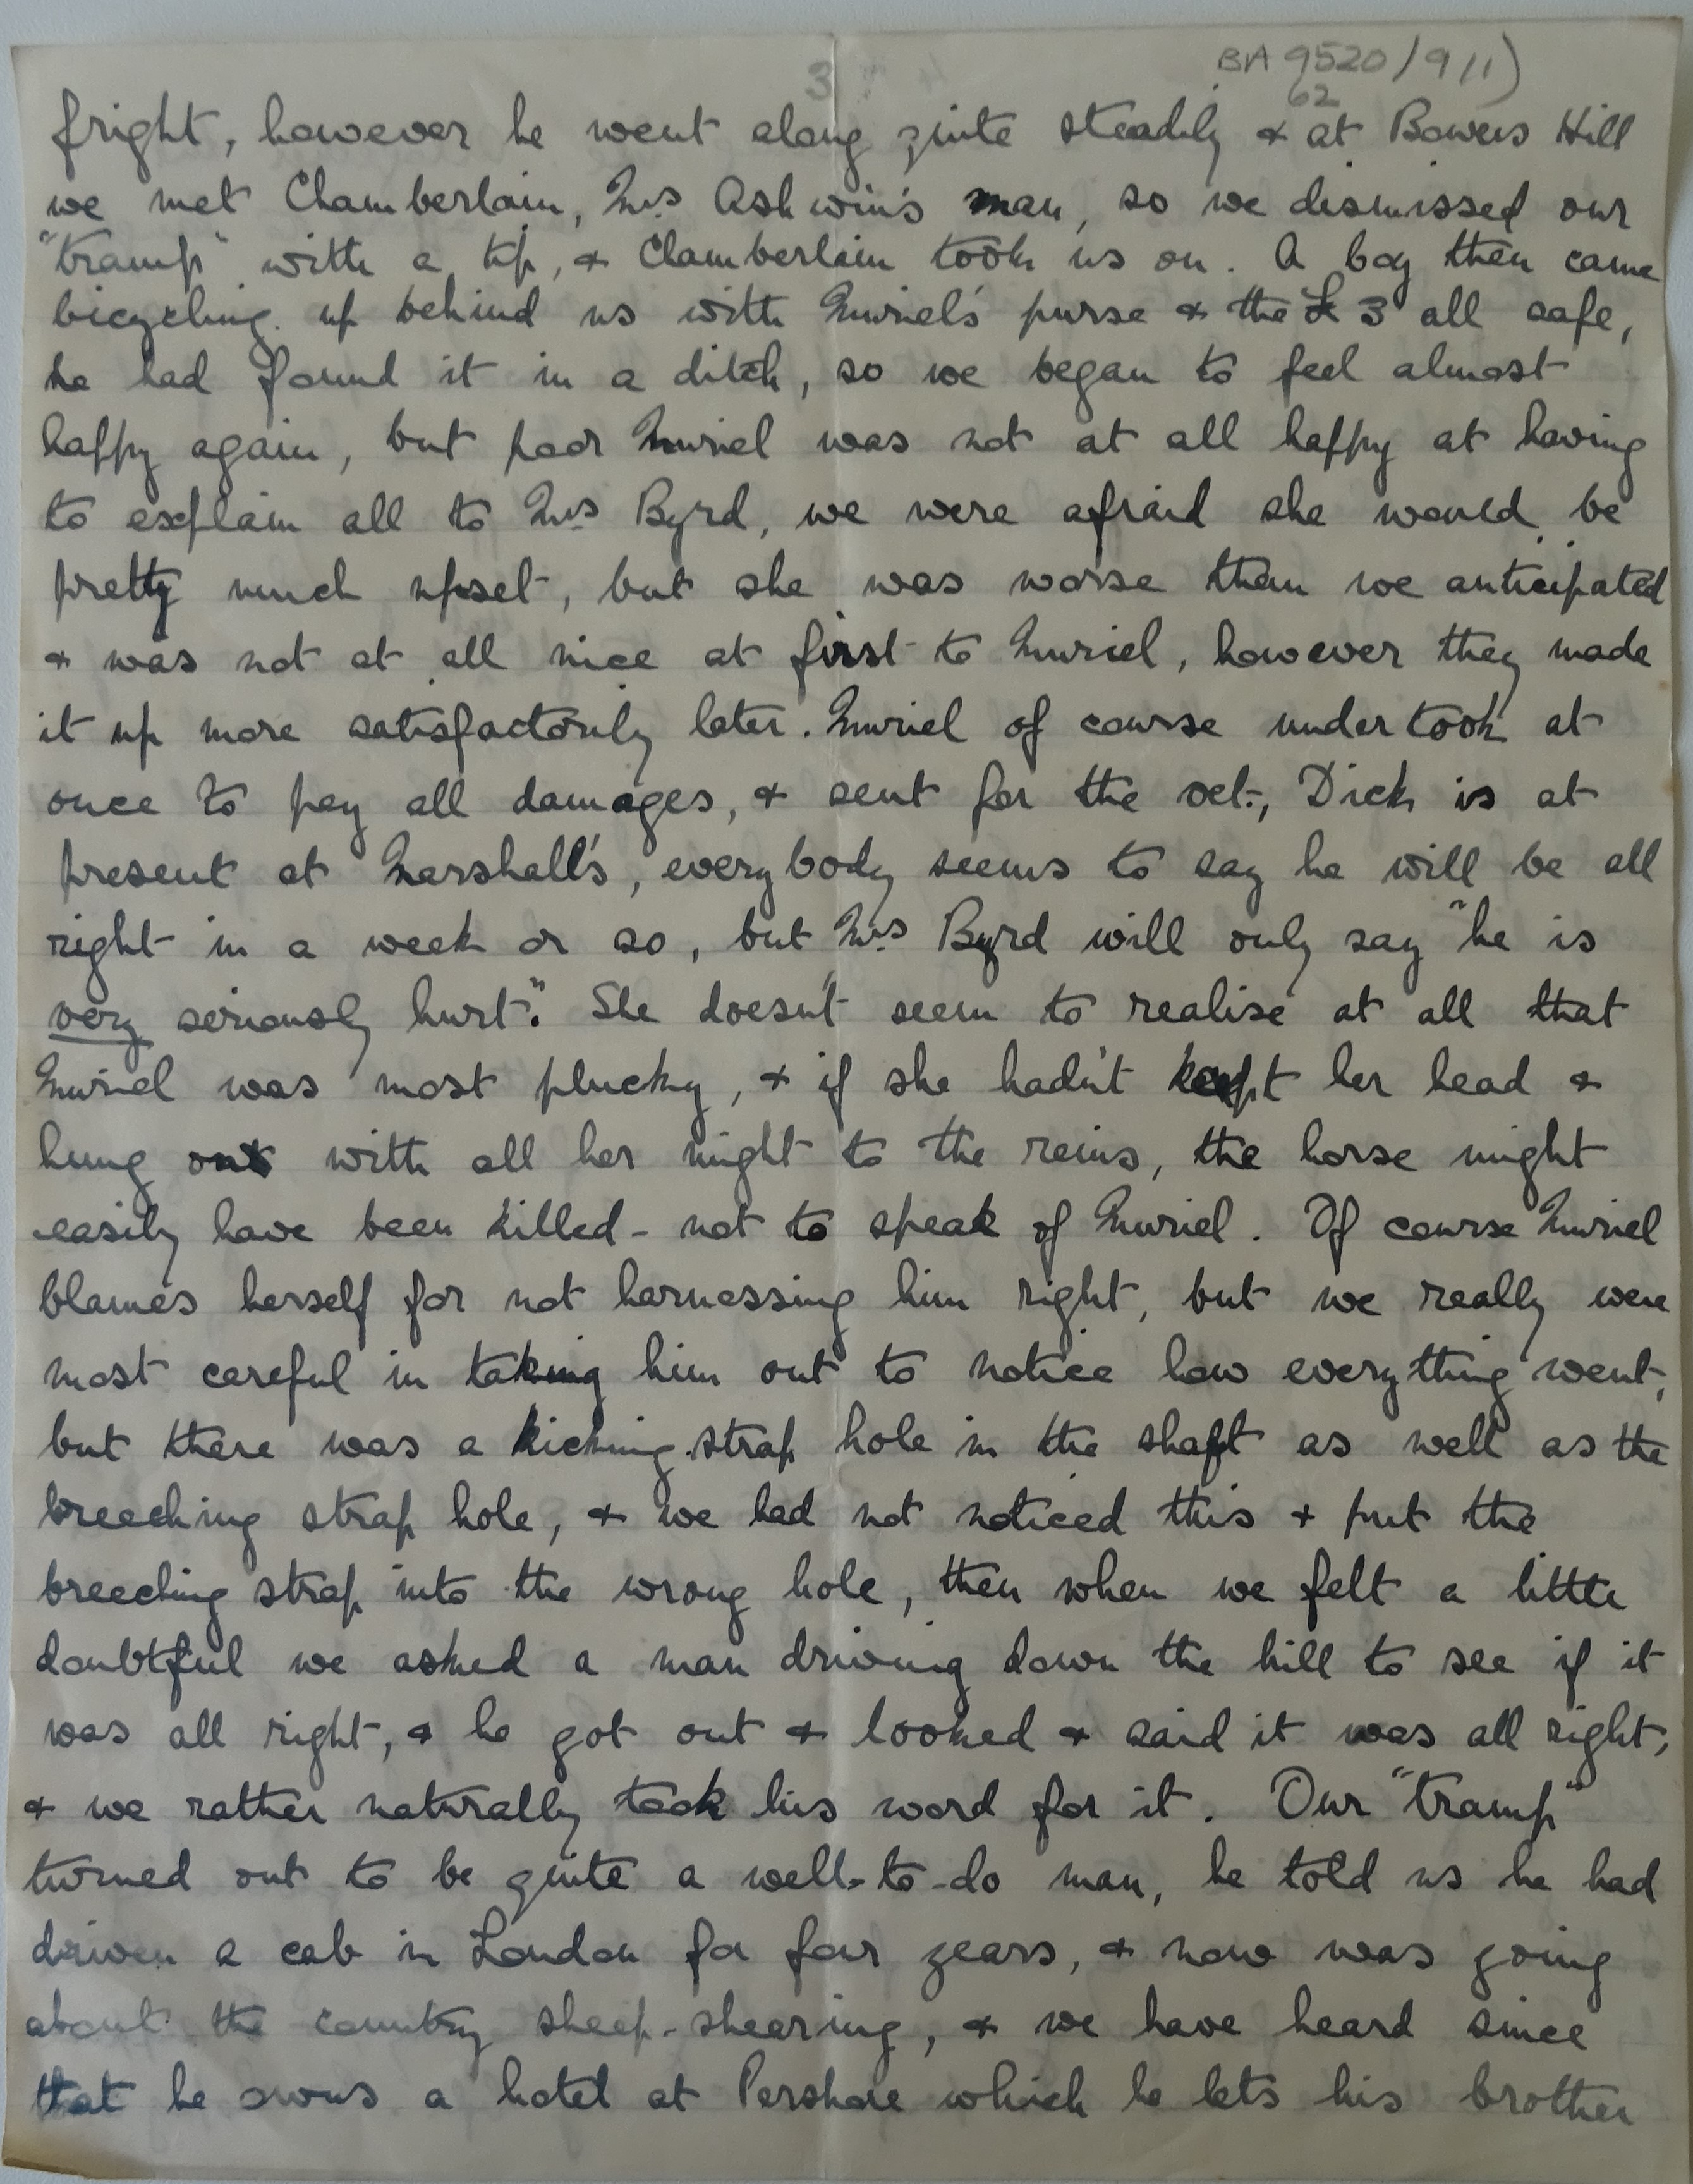 3
BA 9520/9(1)
62
fright, however he went along quite steadily & at Bowers Hill
we met Chamberlain, Mrs Ashwin's man, so we dismissed our
"tramp" with a tip, & Chamberlain took us on. A boy then came
bicycling up behind us with Muriel's purse & the £3 all safe,
he had found it in a ditch, so we began to feel almost
happy again, but poor Muriel was not at all happy at having
to explain all to Mrs Byrd, we were afraid she would be
pretty much upset, but she was worse than we anticipated
& was not at all nice at first to Muriel, however they made
it up more satisfactorily later. Muriel of course undertook at
once to pay all damages, & sent for the vet., Dick is at
present at Marshall's, everybody seems to say he will be all
right in a week or so, but Mrs Byrd will only say "he is
very seriously hurt". She doesn't seem to realise at all that
Muriel was most plucky, & if she hadn't kept her head &
hung on with all her might to the reins, the horse might
easily have been killed - not to speak of Muriel. Of course Muriel
blames herself for not harnessing him right, but we really were
most careful in taking him out to notice how everything went,
but there was a kicking strap hole in the shaft as well as the
breeching strap hole, & we had not noticed this & put the
breeching strap into the wrong hole, then when we felt a little
doubtful we asked a man driving down the hill to see if it
was all right, & he got out & looked & said it was all right,
& we rather naturally took his word for it. Our "tramp"
turned out to be quite a well-to-do man, he told us he had
driven a cab in London for four years, & now was going
about the country sheep-shearing, & we have heard since
that he owns a hotel at Pershore which he lets his brother